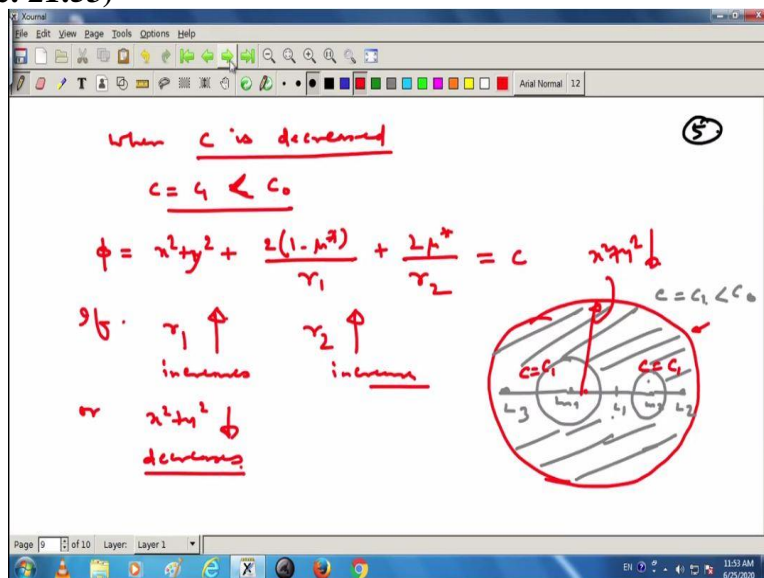 Xournal
File Edit View Page Tools Options Help
Arial Normal 12
5
when c is decreased
c = c₁ < c₀
ϕ = x²+y² + 2(1-μ*)/r₁ + 2μ*/r₂ = c
x²+y² ↓
c = c₁ < c₀
If. r₁ ↑ r₂ ↑
increases increase
c=c₁ c=c₁
L3 m₁ L1 m₂ L2
or x²+y² ↓
decreases.
Page 9 of 10 Layer: Layer 1
EN 11:53 AM
6/25/2020